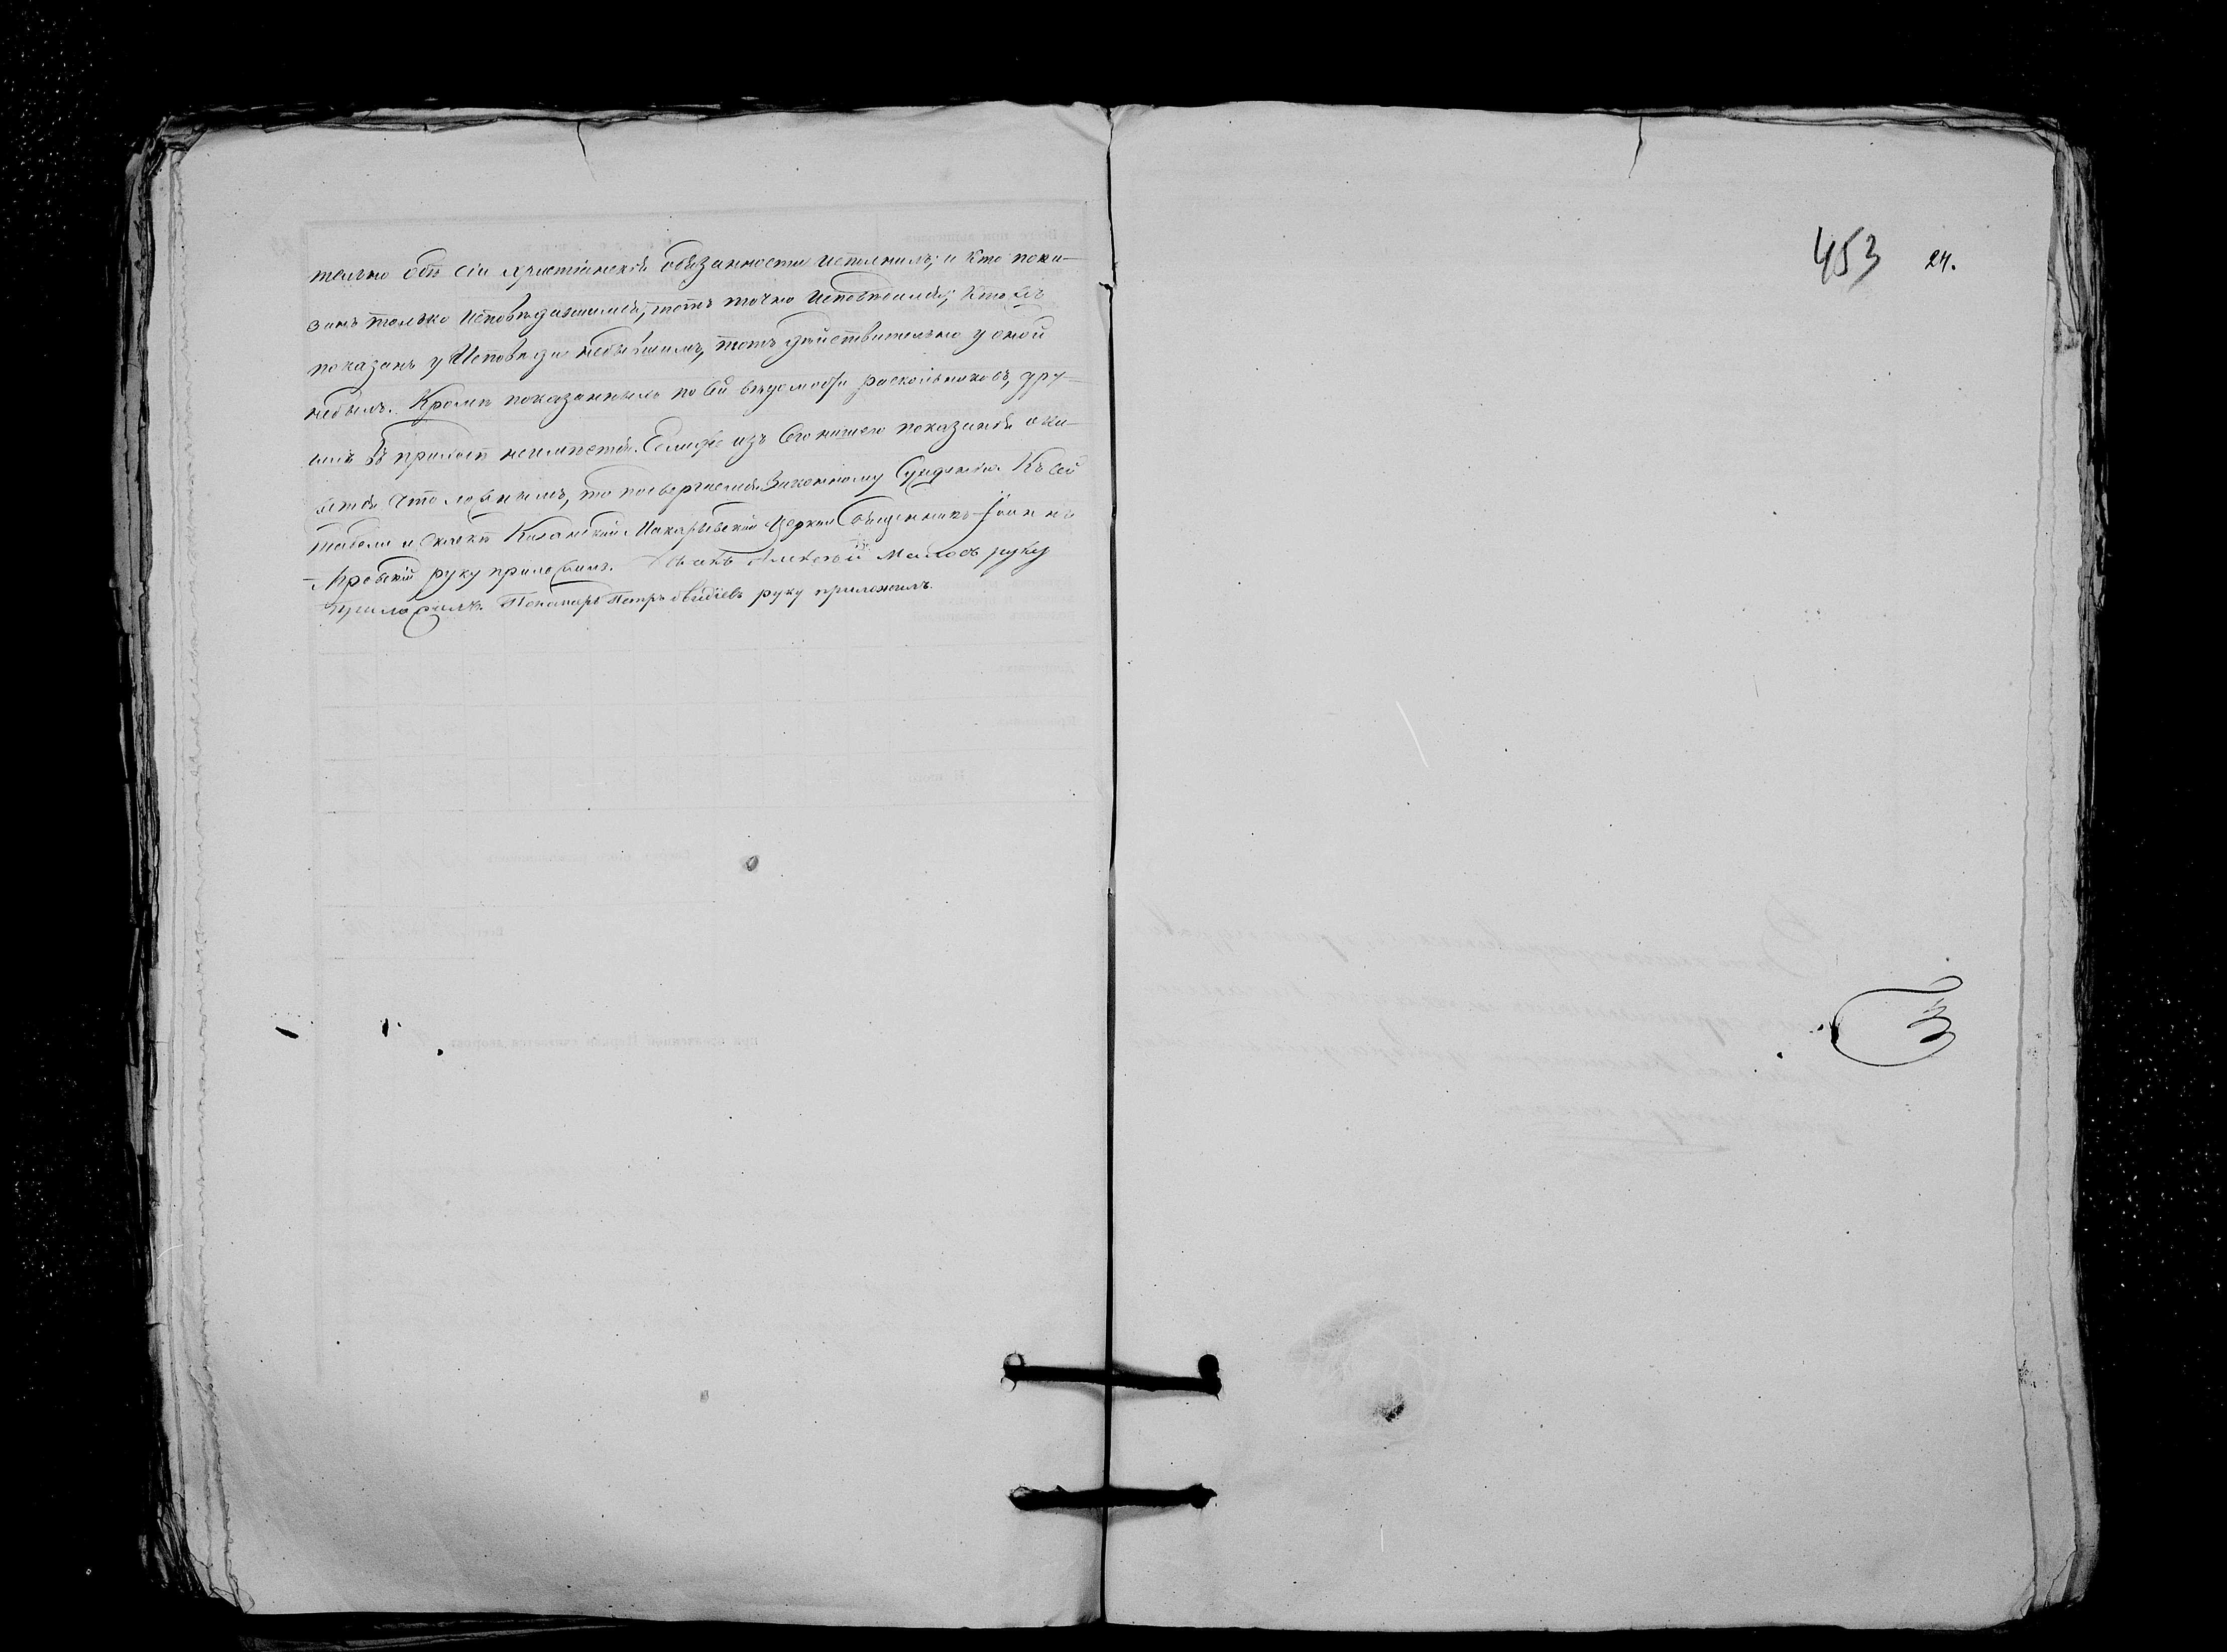 тельно обѣ сіи христіянскія обязанности исполнилъ; и кто пока-
занъ только исповѣдавшимся, тотъ точно исповѣдался; кто жъ
показанъ у Исповѣди небывшимъ, тотъ дѣйствительно у оной
небылъ. Кромѣ показанныхъ по сей вѣдомости раскольниковъ, дру-
гихъ въ приходѣ неимѣется. Если же изъ сего нашего показанія ока-
жется что ложнымъ, то подвергаемся законному сужденію. Къ сей
табели и сказкѣ Казанской Макарьевской церкви Священникъ Іоаннъ
руку приложилъ. Дьякъ Алексѣй Маловъ руку
приложилъ. Пономарь Петръ руку приложилъ.
453 24.